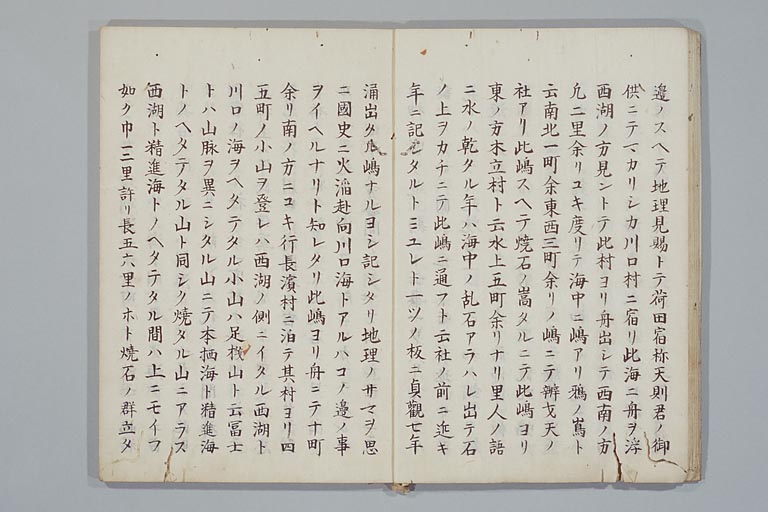 邉ノスヘテ地理見賜トテ荷田宿祢天則君ノ御
供ニテマカリシカ川口村ニ宿リ此海ニ舟ヲ浮
西湖ノ方見ントテ此村ヨリ舟出シテ西南ノ方
凢二里余リユキ度リテ海中ニ嶋アリ鵜ノ嶌ト
云南北一町余東西三町余リノ嶋ニテ辨戈天ノ
社アリ此嶋スヘテ焼石ノ嵩タルニテ此嶋ヨリ
東ノ方本立村ト云水上五町余リナリ里人ノ語
ニ水ノ乾タル年ハ海中ノ乱石アラハレ出テ石
ノ上ヲカチニテ此嶋ニ通フト云社ノ前ニ近キ
年ニ記シタルトミユレト一ツノ板ニ貞觀七年
涌出タル嶋ナルヨシ記シタリ地理ノサマヲ思
ニ國史ニ火焰赴向川口海トアルハコノ邉ノ事
ヲイヘルナリト知レタリ此嶋ヨリ舟ニテ十町
余リ南ノ方ニユキ行長濱村ニ泊テ其村ヨリ四
五町ノ小山ヲ登レハ西湖ノ側ニイタル西湖ト
川口ノ海ヲヘタテタル小山ハ足機山ト云冨士
トハ山脉ヲ異ニシタル山ニテ本栖海ト精進海
トノヘタテタル山ト同シク焼タル山ニアラス
西湖ト精進海トノヘタテタル間ハ上ニモイフ
如ク巾一二里許リ長五六里ノホト焼石ノ群立タ